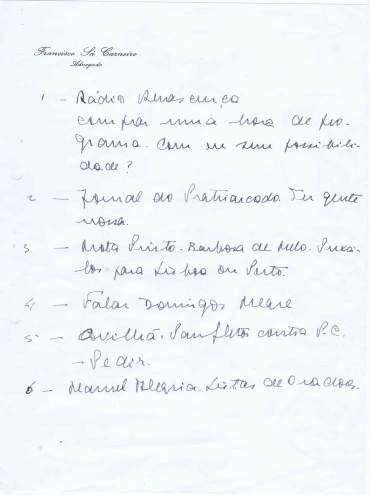 Francisco Sá Carneiro
Advogado
1 - Rádio Renascença
comprar uma hora de pro-
grama. Com ou sem possibili-
dade?
2 - Jornal do Patriarcado. Ter gente
nossa.
3 - Mota Pinto. Barbosa de Melo. Puxá-
los para Lisboa ou Porto.
4 - Falar Domingos
5 - Covilhã. Panfletos contra P.C.
- Pedir.
6 - Manuel Alegria. Listas de Oradores.